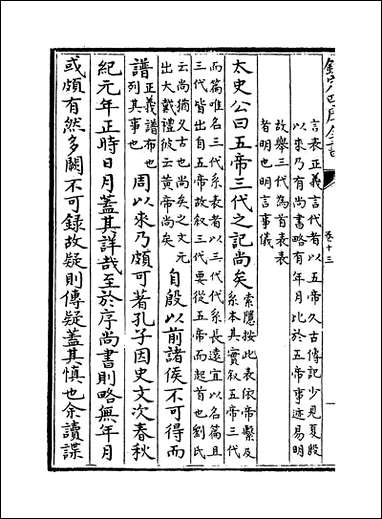 欽定四庫全書
卷十三
一
言表正義言代者以五帝久古傳記少見夏殷
以來乃有尚書略有年月比於五帝事迹易明
故舉三代為首表表
者明也明言事儀
太史公曰五帝三代之記尚矣
索隱按此表依帝繫及
系本其實叙五帝三代
而篇唯名三代系表者以三代代系長遠宜以名篇且
三代皆出自五帝故叙三代要從五帝而起首也劉氏
云尚猶久古也尚矣之文元
出大戴禮彼云黃帝尚矣
自殷以前諸侯不可得而
譜
正義譜布也
列其事也
周以來乃頗可著孔子因史文次春秋
紀元年正時日月蓋其詳哉至於序尚書則略無年月
或頗有然多闕不可録故疑則傳疑蓋其慎也余讀諜